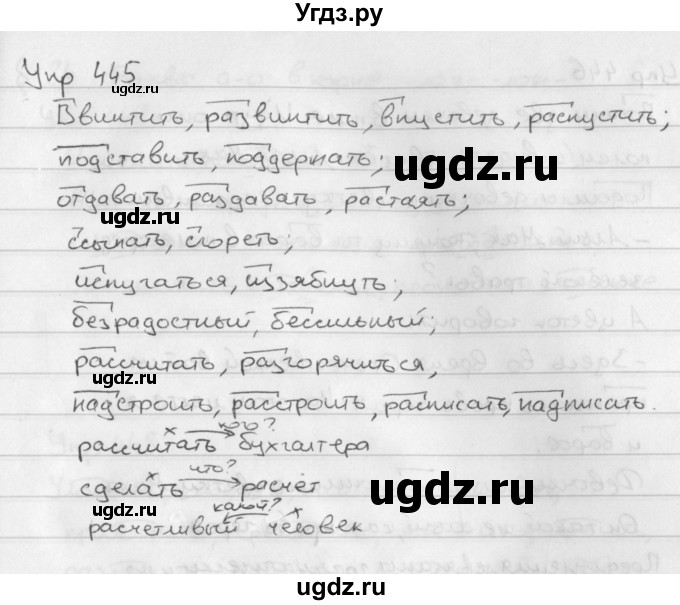 Угдз.ру
Упр 445
ugdz.ru
Ввинтить, развинтить, впустить, распустить;
подставить, поддержать;
ugdz.ru
отдавать, раздавать, растаять;
ugdz.ru
ссыпать, сгореть,
испугаться, иззябнуть;
безрадостный, бессильный;
рассчитать, разгорячиться,
ugdz.ru
надстроить, расстроить, расписать, надписать.
кого?
рассчитать бухгалтера
что?
сделать расчёт
ugdz.ru
какой?
расчетливый человек
ugdz.ru